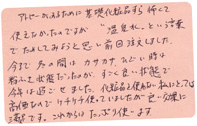 アトピーがあるために基礎化粧品すら怖くて
使えなかったのですが "温泉水"という言葉
でためしてみようと思い前回注文しました。
今まで冬の間はカサカサ、ひどい時は
粉ふき状態だったが、すごく良い状態で
今年は過ごせました。化粧品を使えない私にとっては
高価なのでケチケチ使っていましたが良い効果に
満足です。これからはたっぷり使います